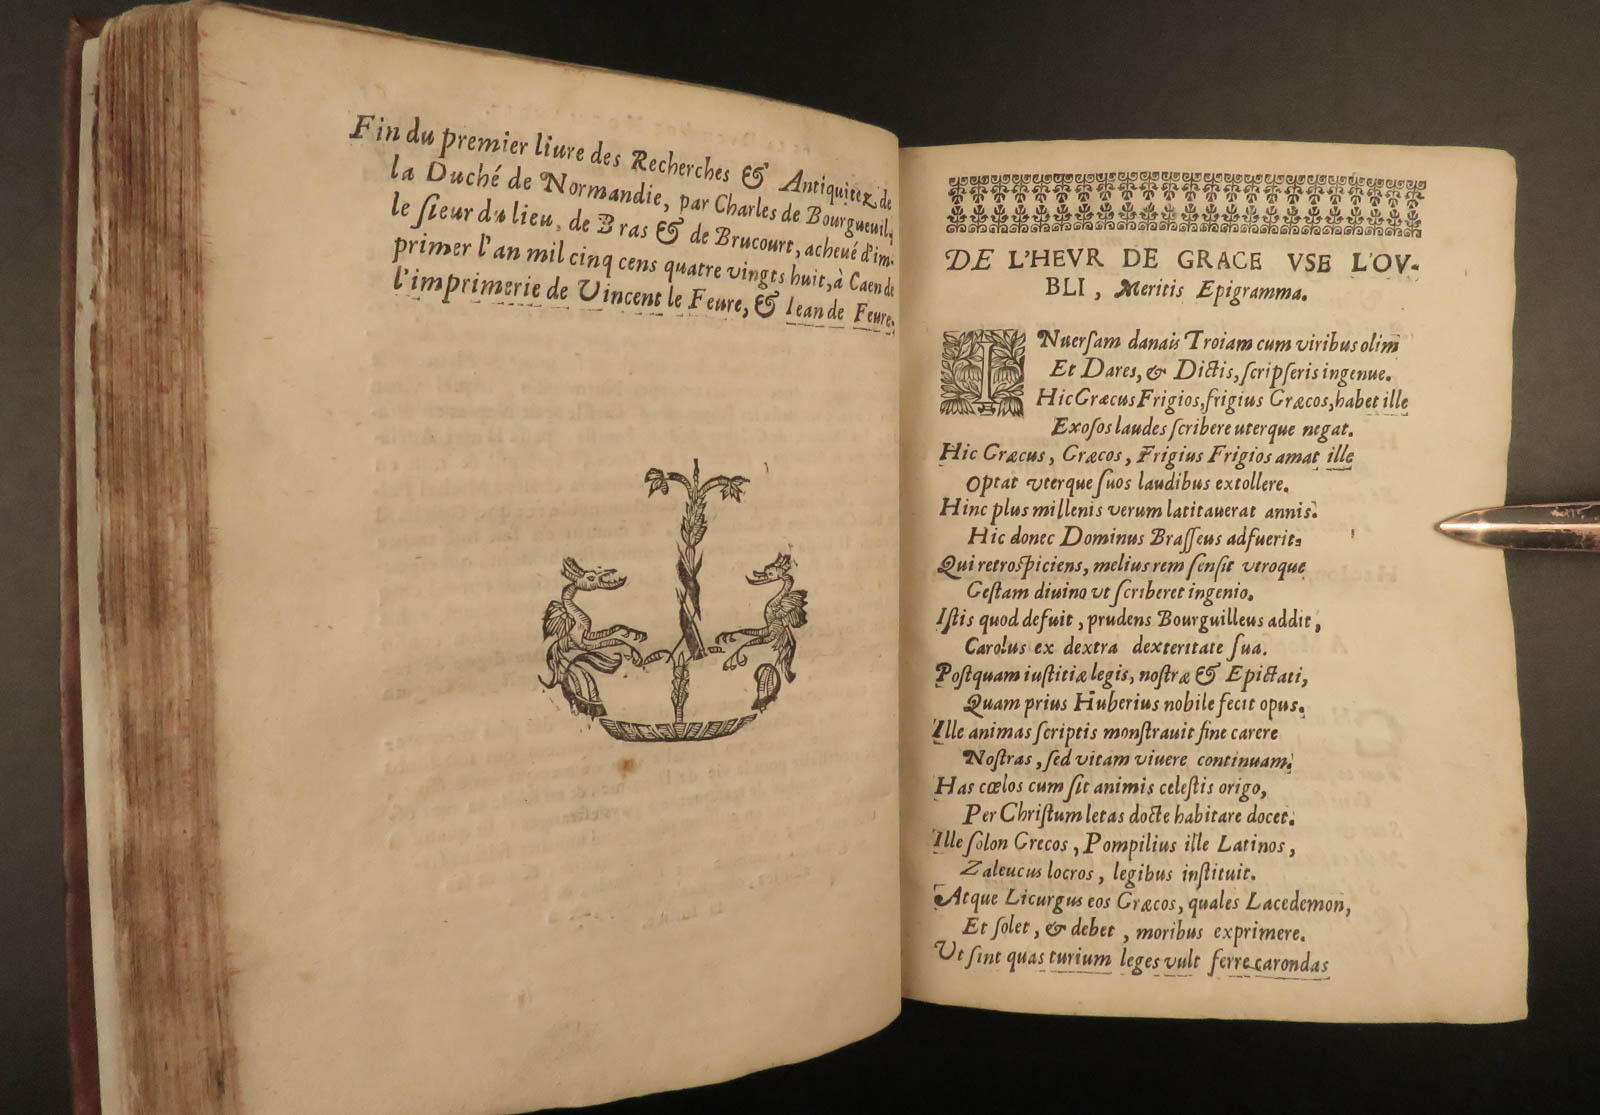 Fin du premier liure des Recherches & Antiquitez de
la Duché de Normandie, par Charles de Bourgueuil,
le ſieur du lieu, de Bras & de Brucourt, acheué d'im-
primer l'an mil cinq cens quatre vingts huit, à Caen de
l'imprimerie de Vincent le Feure, & Iean de Feure.
DE L'HEVR DE GRACE VSE L'OV-
BLI, Meritis Epigramma.
INuerſam danais Troiam cum viribus olim
Et Dares, & Dictis, ſcripſeris ingenue.
Hic Græcus Frigios, frigius Græcos, habet ille
Exoſos laudes ſcribere uterque negat.
Hic Græcus, Græcos, Frigius Frigios amat ille
Optat vterque ſuos laudibus extollere.
Hinc plus millenis verum latitauerat annis.
Hic donec Dominus Braſſeus adfuerit.
Qui retroſpiciens, melius rem ſenſit vtroque
Geſtam diuino vt ſcriberet ingenio.
Iſtis quod defuit, prudens Bourguilleus addit,
Carolus ex dextra dexteritate ſua.
Poſtquam iuſtitiæ legis, noſtræ & Epictati,
Quam prius Huberius nobile fecit opus.
Ille animas ſcriptis monſtrauit fine carere
Noſtras, ſed vitam viuere continuam.
Has cœlos cum ſit animis celeſtis origo,
Per Chriſtum letas docte habitare docet.
Ille ſolon Grecos, Pompilius ille Latinos,
Zaleucus locros, legibus inſtituit.
Atque Licurgus eos Græcos, quales Lacedemon,
Et ſolet, & debet, moribus exprimere.
Vt ſint quas turium leges vult ferre carondas